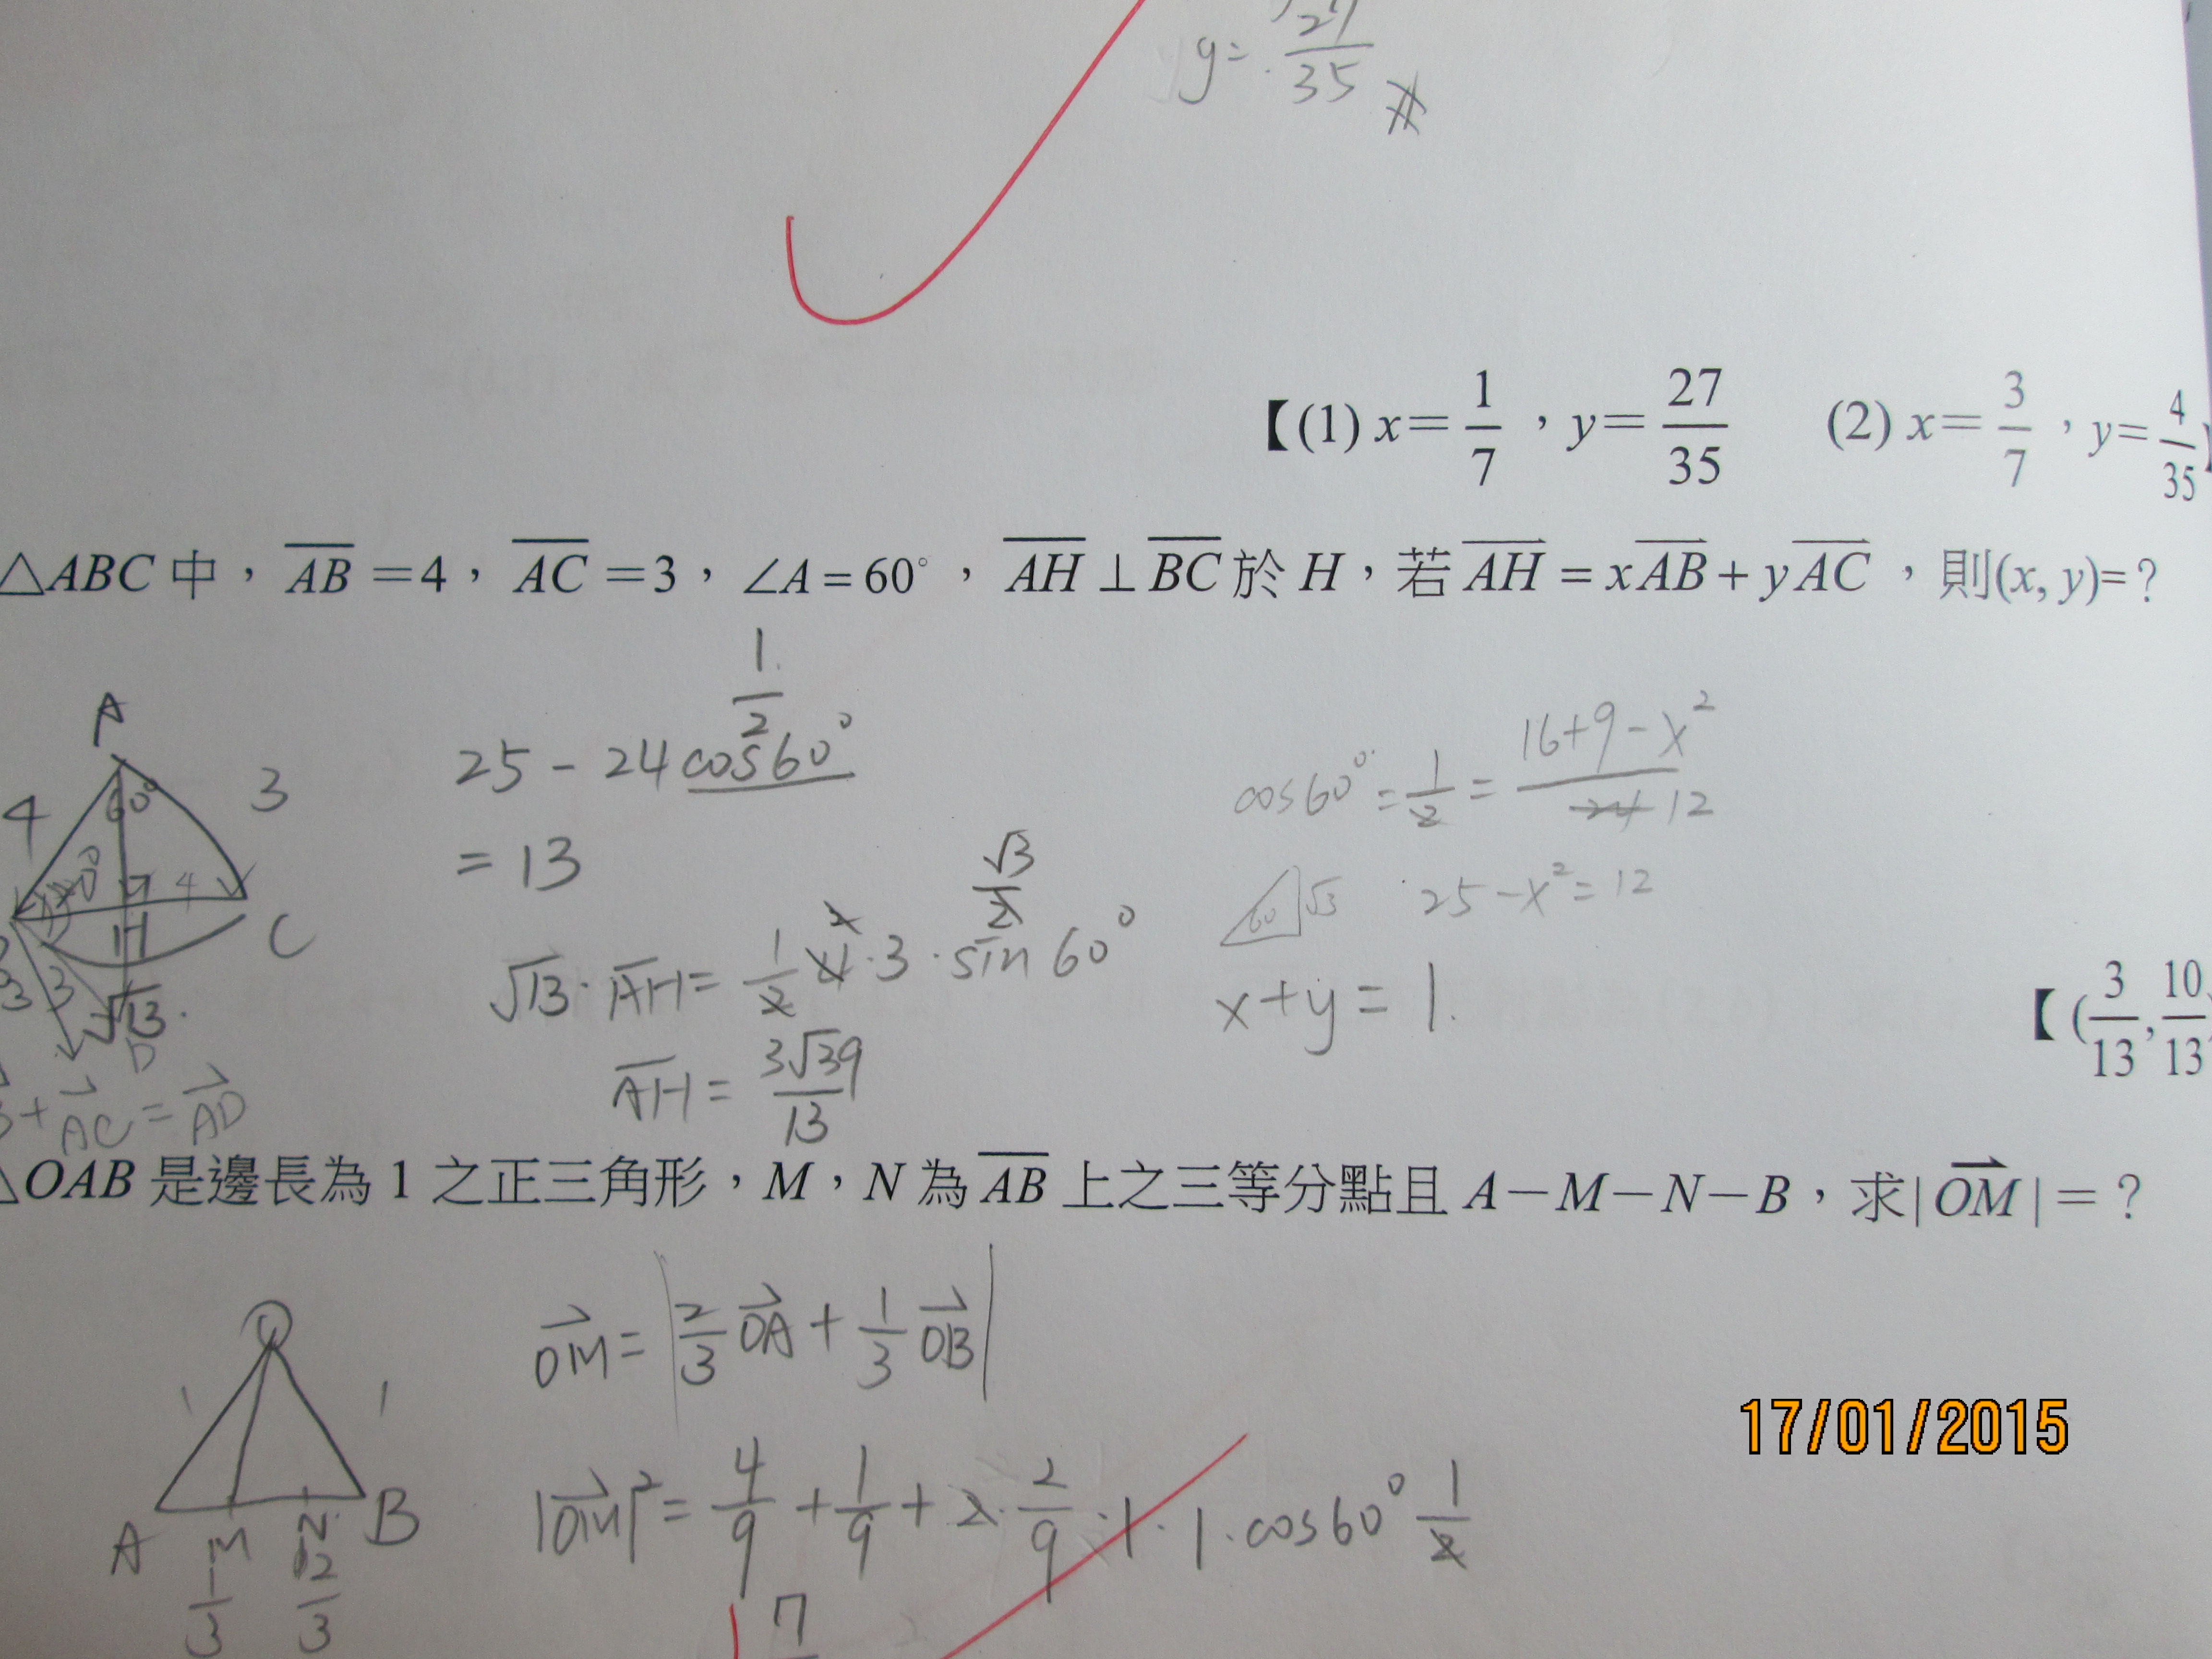 y = 27/35 #
【(1) x = 1/7 , y = 27/35 (2) x = 3/7 , y = 4/35】
△ABC 中, AB = 4, AC = 3, ∠A = 60°, AH ⊥ BC 於 H,若 AH = xAB + yAC ,則(x, y)=?
A
4
60°
3
4
H
C
3
√13.
D
+ AC = AD
25 - 24 cos60° 1/2
= 13
√13 · AH = 1/2 4 · 3 · sin 60° √3/2
AH = 3√39/13
cos60° = 1/2 = 16+9-x²/24 12
60 √3
25 - x² = 12
x + y = 1.
【(3/13, 10/13
△OAB 是邊長為 1 之正三角形,M,N 為 AB 上之三等分點且 A-M-N-B,求|OM| = ?
O
1
1
A
M
N
B
1/3
2/3
OM = |2/3 OA + 1/3 OB|
|OM|² = 4/9 + 1/9 + 2 · 2/9 · 1 · 1 · cos60° 1/2
7
17/01/2015